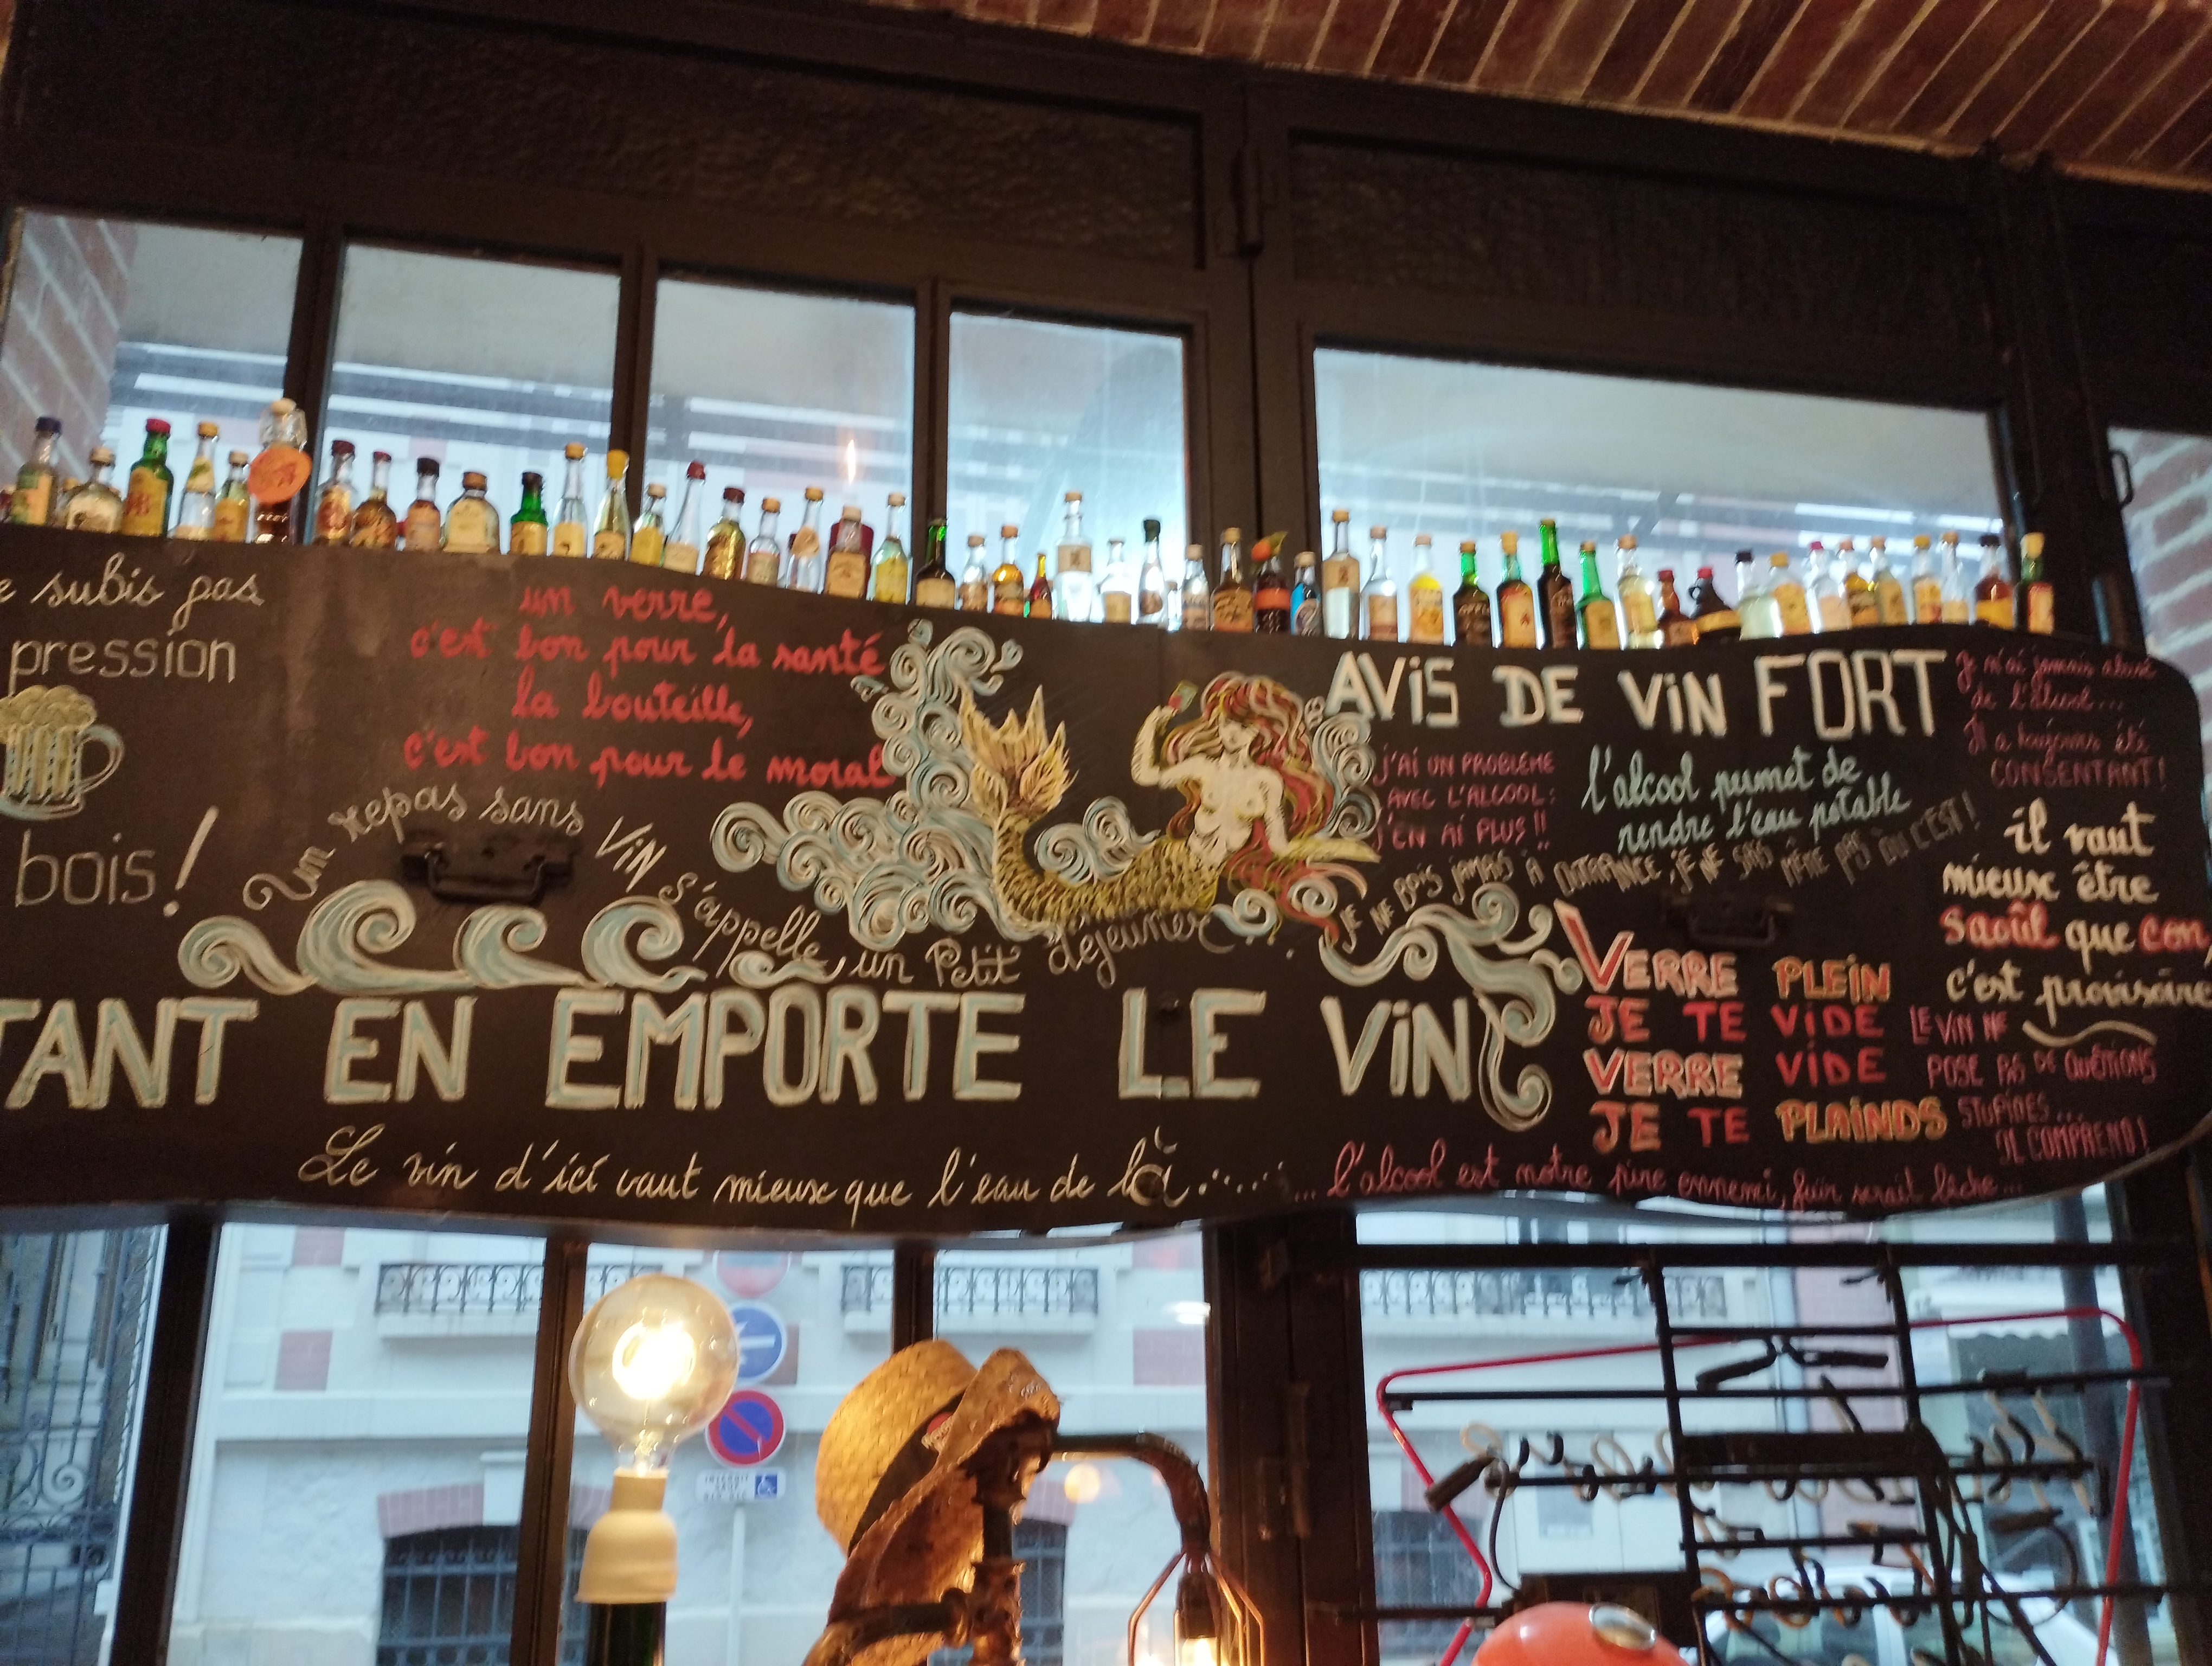 e subis pas
pression
bois!
un verre,
c'est bon pour la santé
la bouteille,
c'est bon pour le moral
Un repas sans ViN s'appelle un Petit déjeuner
TANT EN EMPORTE LE ViN
Le vin d'ici vaut mieux que l'eau de là.......
AViS DE ViN FORT
J'Ai UN PROBLEME
AVEC L'ALCOOL:
J'EN Ai PLUS!!
l'alcool permet de
rendre l'eau potable
JE NE BOiS jAMAiS À OUTRANCE, jE NE SAiS MÊME PAS OÙ C'EST!
VERRE PLEiN
JE TE ViDE
VERRE ViDE
JE TE PLAiNDS
Je n'ai jamais abusé
de l'alcool...
Il a toujours été
CONSENTANT!
il vaut
mieux être
saoûl que con,
c'est provisoire
LE ViN NE
POSE PAS DE QUÉTIONS
STUPiDES...
IL COMPREND!
... l'alcool est notre pire ennemi, fuir serait lâche...